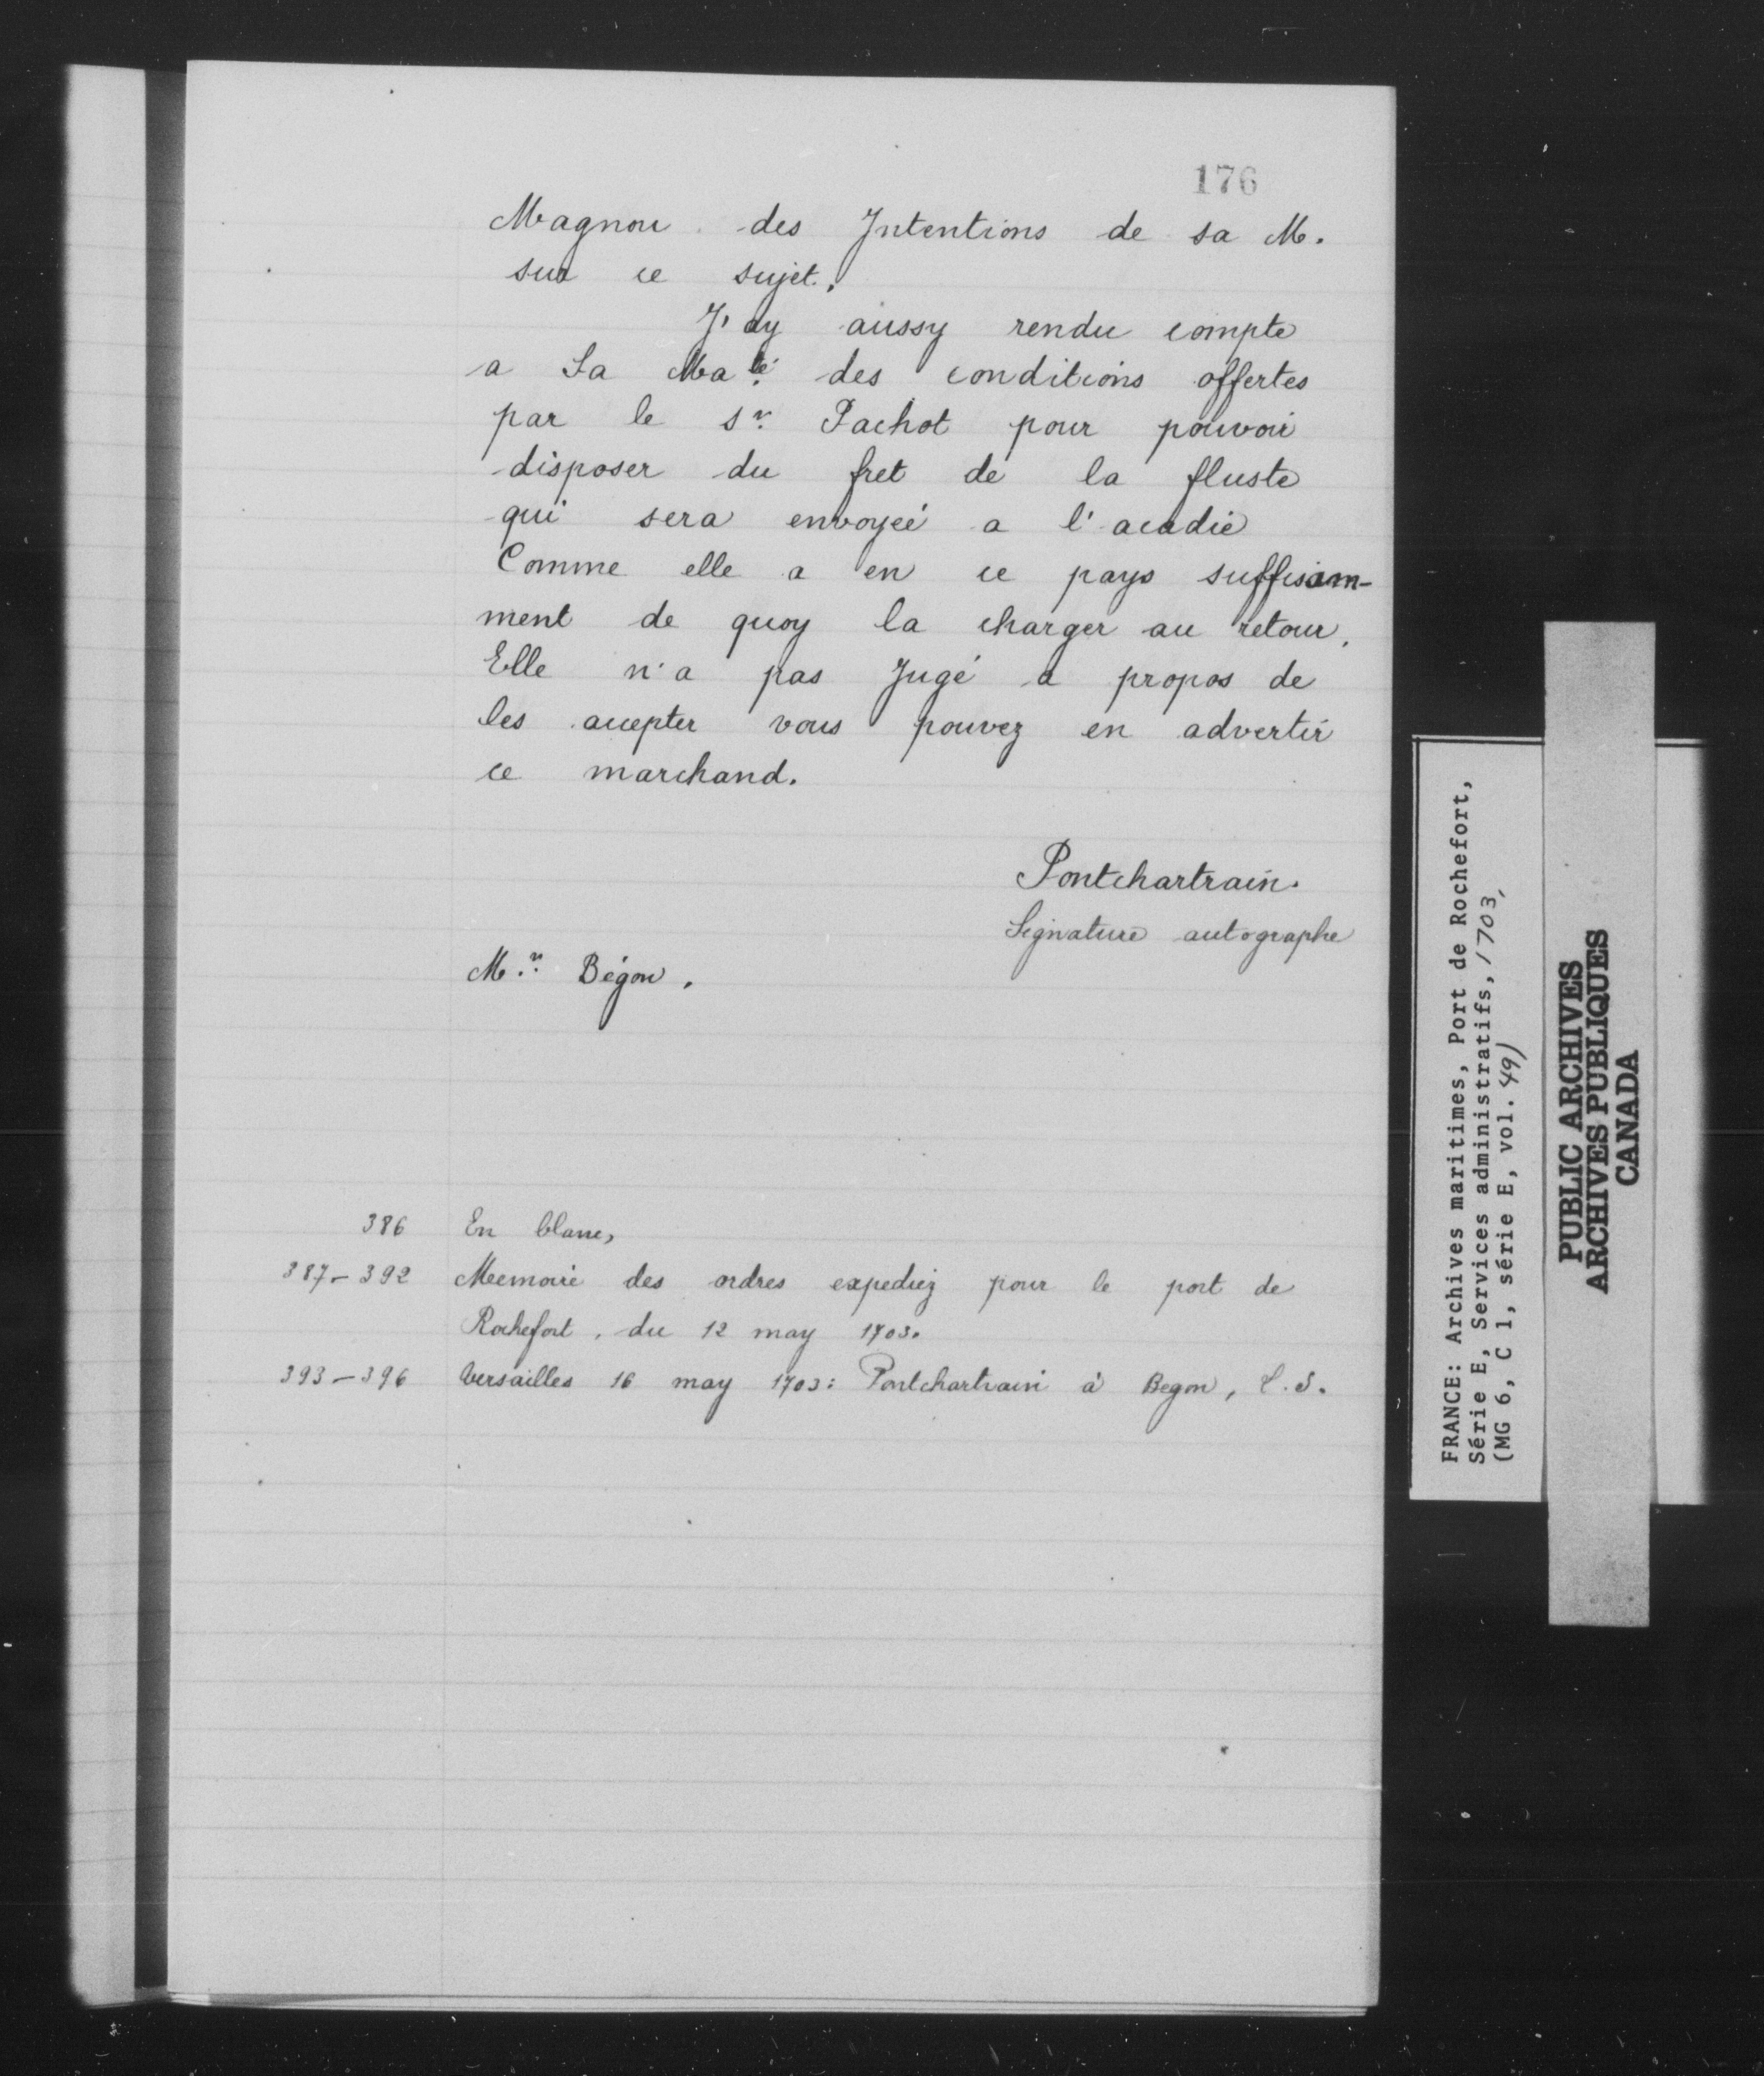 176
Magnou des Intentions de sa M.
sur ce sujet.
J'ay aussy rendu compte
a Sa Ma.té des conditions offertes
par le Sr. Pachot pour pouvoir
disposer du fret de la fluste
qui sera envoyeé a l'acadie
Comme elle a en ce pays suffisam-
ment de quoy la charger au retour.
Elle n'a pas Jugé a propos de
les accepter vous pouvez en advertir
ce marchand.
Pontchartrain.
Signature autographe
M.r Bégon.
386 En blanc,
387-392 Memoire des ordres expediez pour le port de
Rochefort, du 12 may 1703.
393-396 Versailles 16 may 1703: Pontchartrain à Begon, L.S.
FRANCE: Archives maritimes, Port de Rochefort,
Série E, Services administratifs, 1703,
(MG 6, C 1, série E, vol. 49)
PUBLIC ARCHIVES
ARCHIVES PUBLIQUES
CANADA